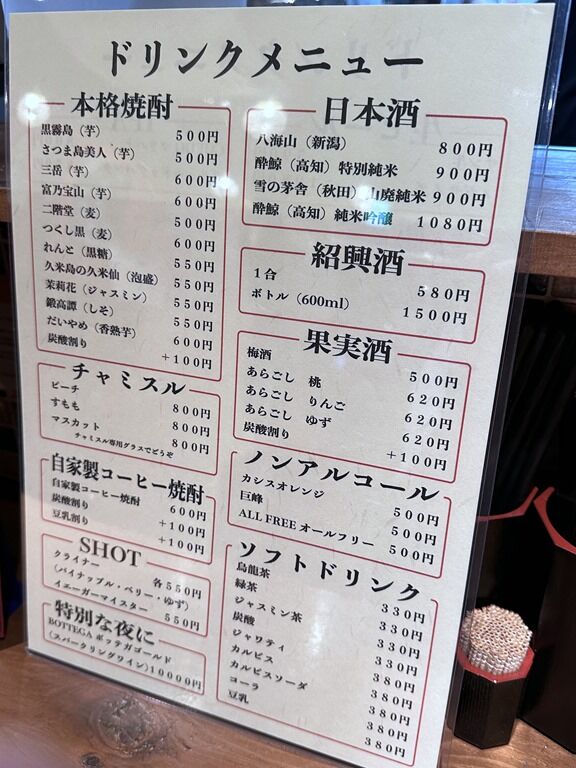 ドリンクメニュー
本格焼酎
黒霧島（芋） 500円
さつま島美人（芋） 500円
三岳（芋） 600円
富乃宝山（芋） 600円
二階堂（麦） 500円
つくし黒（麦） 600円
れんと（黒糖） 550円
久米島の久米仙（泡盛） 550円
茉莉花（ジャスミン） 550円
鍛高譚（しそ） 550円
だいやめ（香熟芋） 600円
炭酸割り +100円
チャミスル
ピーチ 800円
すもも 800円
マスカット 800円
チャミスル専用グラスでどうぞ
自家製コーヒー焼酎
自家製コーヒー焼酎 600円
炭酸割り +100円
豆乳割り +100円
SHOT
クライナー 各550円
（パイナップル・ベリー・ゆず）
イエーガーマイスター 550円
特別な夜に
BOTTEGA ボッテガゴールド
（スパークリングワイン）10000円
日本酒
八海山（新潟） 800円
酔鯨（高知）特別純米 900円
雪の茅舎（秋田）山廃純米 900円
酔鯨（高知）純米吟醸 1080円
紹興酒
1合 580円
ボトル（600ml） 1500円
果実酒
梅酒 500円
あらごし 桃 620円
あらごし りんご 620円
あらごし ゆず 620円
炭酸割り +100円
ノンアルコール
カシスオレンジ 500円
巨峰 500円
ALL FREE オールフリー 500円
ソフトドリンク
烏龍茶 330円
緑茶 330円
ジャスミン茶 330円
炭酸 330円
ジャワティ 380円
カルピス 380円
カルピスソーダ 380円
コーラ 380円
豆乳 380円